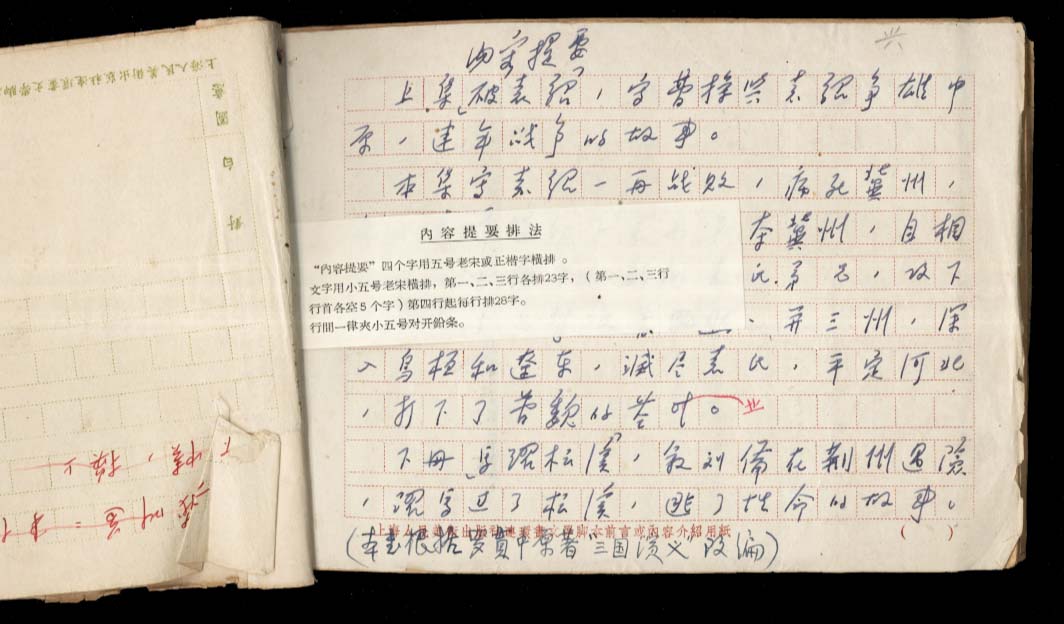 内容提要
上集「破袁绍」，写曹操与袁绍争雄中
原，连年战争的故事。
本集写袁绍一再战败，病死冀州，
夺冀州，自相
攻下
并三州，深
入乌桓和辽东，灭尽袁氏，平定河北
，打下了曹魏的基业。
下册「马跃檀溪」，叙刘备在荆州遇险
，跃马过了檀溪，逃了性命的故事。
(本书根据罗貫中原著“三国演义”改编)
上海人民美術出版社連環畫文學脚本前言或內容介紹用紙
( )
内容提要排法
“内容提要”四个字用五号老宋或正楷字橫排。
文字用小五号老宋橫排，第一、二、三行各排23字，（第一、二、三行
行首各空5个字）第四行起每行排28字。
行間一律夹小五号对开鉛条。
上海人民美術出版社連環畫文學脚